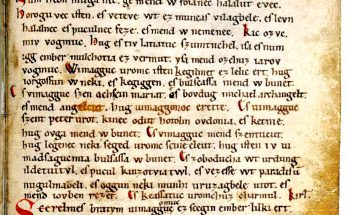 ge mend w foianec halalut evec.
Horogu vec isten. es veteve wt ez muncas vilagbele. es levn
halalnec es puculnec feze. es mend w nemenec. Kic ozvc.
miv vogmuc. Hog es tiv latiatuv szumtuchel. isa es num
igg ember mulchotia ez vermut. ysa mend ozchuz iarov
vogmuc. Wimagguc uromv isten kegilmet ez lelic ert. hug
iorgossun w neki. es kegiggen. es bulsassa mend w bunet.
Es vimagguc szen achscin mariat. es bovdug michael archangelt.
es mend angelcut. hug uimaggonoc erette. Es uimagguc
szent peter urot. kinec odut hotolm ovdonia. es ketnie.
hug ovga mend w bunet. Es vimagguc mend szentucut.
hug legenec neki seged uromv scine eleut. hug isten iv ui
madsagucmia bulsassa w bunet. Es zoboducha wt urdung
ildetuitvl. es pucul kinzotviatwl. es vezesse wt paradisu
nugulmabeli. es oggun neki munhi uruzagbele utot. es
mend iovben rezet. Es keassatuc uromchuz charmul. Kirl.
Scerelmes bratym uimagguc omuc ez scegin ember lilki ert.